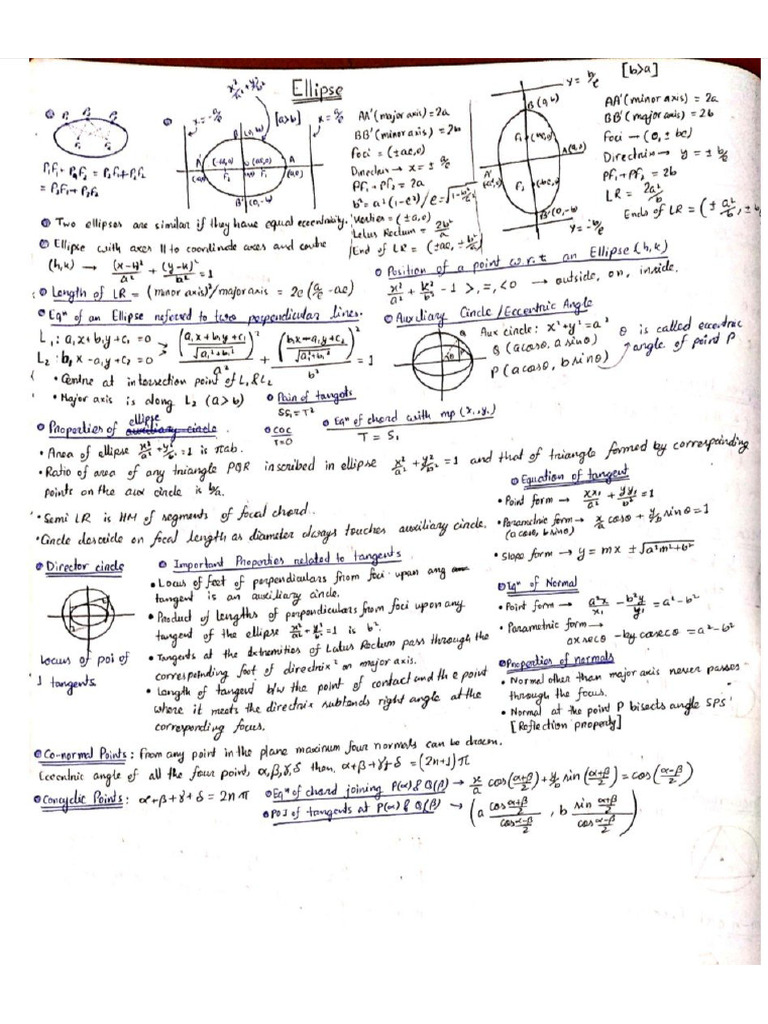 Ellipse
[a>b]
x²/a² + y²/b²
x = -a/e
x = a/e
P₁F₁ + P₁F₂ = P₂F₁ + P₂F₂
= P₃F₁ + P₃F₂
AA' (major axis) = 2a
BB' (minor axis) = 2b
Foci = (±ae, 0)
Directrix → x = ± a/e
PF₁ + PF₂ = 2a
b² = a²(1-e²) / e = √(1-b²/a²)
Vertices = (±a, 0)
Latus Rectum = 2b²/a
End of LR = (±ae, ± b²/a)
[b>a]
y = b/e
y = -b/e
AA' (minor axis) = 2a
BB' (major axis) = 2b
Foci → (0, ± be)
Directrix → y = ± b/e
PF₁ + PF₂ = 2b
LR = 2a²/b
Ends of LR = (± a²/b, ± b
Two ellipses are similar if they have equal eccentricity.
Ellipse with axes || to coordinate axes and centre
(h,k) → (x-h)²/a² + (y-k)²/b² = 1
Length of LR = (minor axis)²/major axis = 2e(a/e - ae)
Position of a point w.r.t an Ellipse (h,k)
h²/a² + k²/b² - 1 >, =, <0 → outside, on, inside.
Eqⁿ of an Ellipse referred to two perpendicular lines.
L₁: a₁x + b₁y + c₁ = 0
L₂: b₁x - a₁y + c₂ = 0
((a₁x + b₁y + c₁)/√(a₁²+b₁²))²/a² + ((b₁x - a₁y + c₂)/√(a₁²+b₁²))²/b² = 1
• Centre at intersection point of L₁ & L₂
• Major axis is along L₂ (a>b)
Auxiliary Circle/Eccentric Angle
Aux circle: x²+y²=a²
Q (a cosθ, a sinθ)
P (a cosθ, b sinθ)
θ is called eccentric
angle of point P
Pair of tangets
SS₁ = T²
COC
T=0
Eqⁿ of chord with mp (x₁,y₁)
T = S₁
Properties of ellipse
• Area of ellipse x²/a² + y²/b² = 1 is πab.
• Ratio of area of any triangle PQR inscribed in ellipse x²/a² + y²/b² = 1 and that of triangle formed by corresponding
points on the aux circle is b/a.
• Semi LR is HM of segments of focal chord.
• Circle described on focal length as diameter always touches auxiliary circle.
Equation of tangent
• Point form → xx₁/a² + yy₁/b² = 1
• Parametric form → x/a cosθ + y/b sinθ = 1
(a cosθ, b sinθ)
• Slope form → y = mx ± √(a²m²+b²)
Director circle
locus of poi of
⊥ tangents.
Important Properties related to tangents.
• Locus of feet of perpendiculars from foci upon any
tangent is an auxiliary circle.
• Product of lengths of perpendiculars from foci upon any
tangent of the ellipse x²/a² + y²/b² = 1 is b².
• Tangents at the extremities of Latus Rectum pass through the
corresponding foot of directrix on major axis.
• Length of tangent b/w the point of contact and the point
where it meets the directrix subtends right angle at the
corresponding focus.
Eqⁿ of Normal
• Point form → a²x/x₁ - b²y/y₁ = a²-b²
• Parametric form →
ax secθ - by cosecθ = a²-b²
Properties of normals
• Normal other than major axis never passes
through the focus.
• Normal at the point P bisects angle SPS'
[Reflection property]
Co-normal Points: From any point in the plane maximum four normals can be drawn.
Eccentric angle of all the four point, α,β,γ,δ then, α+β+γ+δ = (2n+1)π
Concyclic Points: α+β+γ+δ = 2nπ
Eqⁿ of chord joining P(α) & Q(β) → x/a cos((α+β)/2) + y/b sin((α+β)/2) = cos((α-β)/2)
POI of tangents at P(α) & Q(β) → (a cos((α+β)/2)/cos((α-β)/2), b sin((α+β)/2)/cos((α-β)/2))